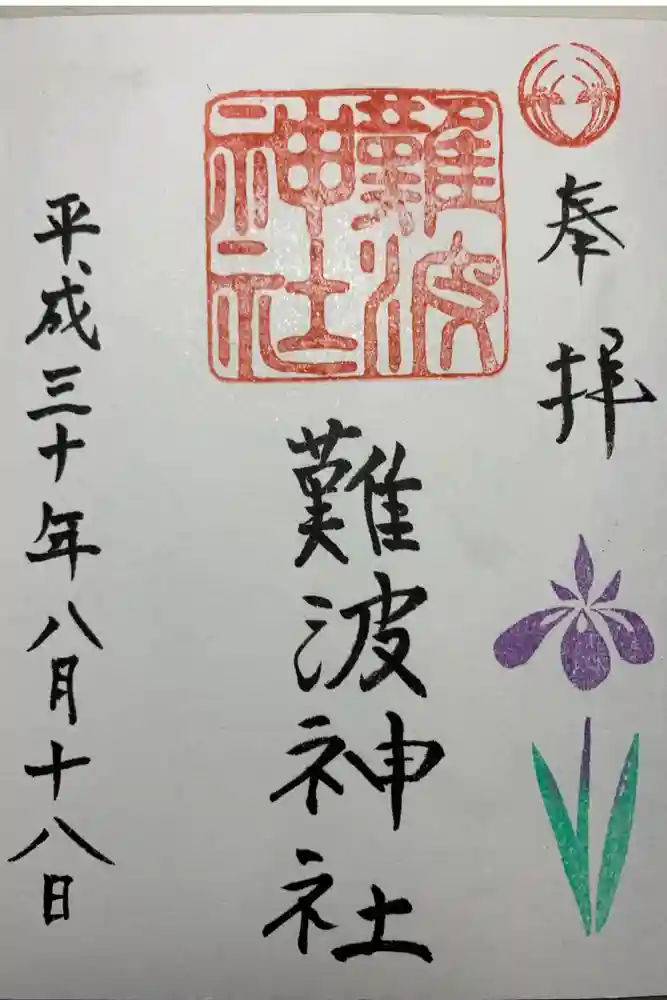 奉拝
難波神社
難波神社
平成三十年八月十八日